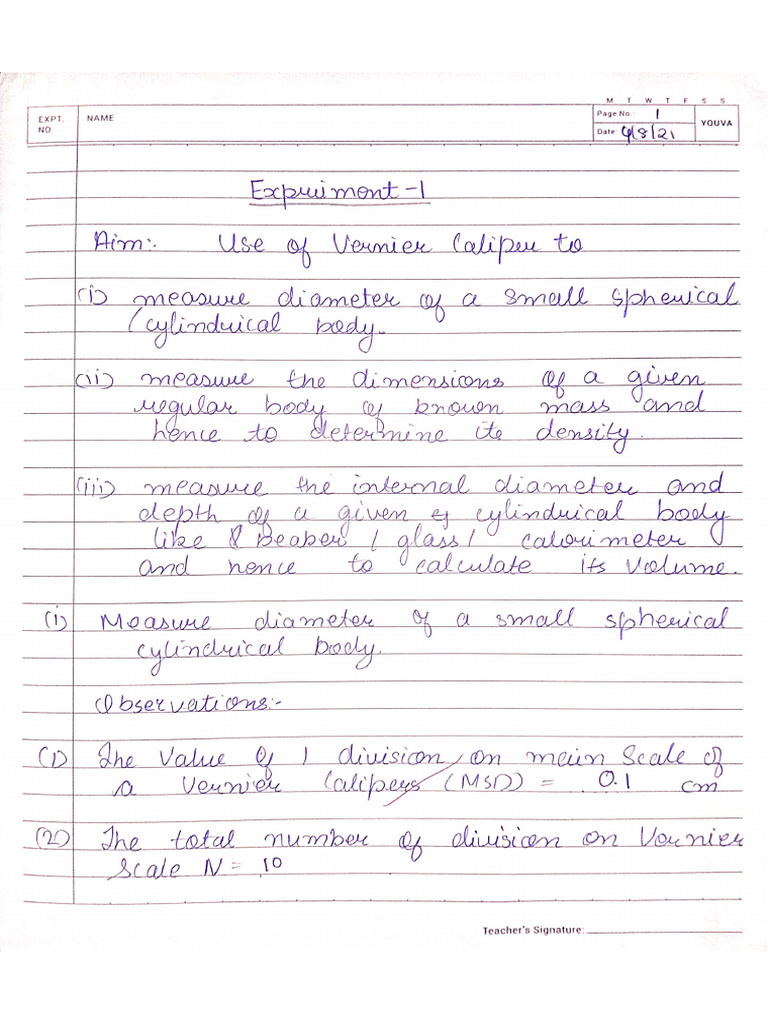 M T W T F S S
EXPT. NO. NAME Page No.: 1 YOUVA
Date: 4/8/21
Experiment-1
Aim:- Use of Vernier Caliper to
(i) measure diameter of a small spherical
/cylindrical body.
(ii) measure the dimensions of a given
regular body of known mass and
hence to determine its density.
(iii) measure the internal diameter and
depth of a given cylindrical body
like Beaker / glass / calorimeter
and hence to calculate its volume.
(i) Measure diameter of a small spherical
cylindrical body.
Observations:-
(1) The Value of 1 division on main Scale of
a Vernier Calipers (MSD) = 0.1 cm
(2) The total number of division on Vernier
Scale N = 10
Teacher's Signature: